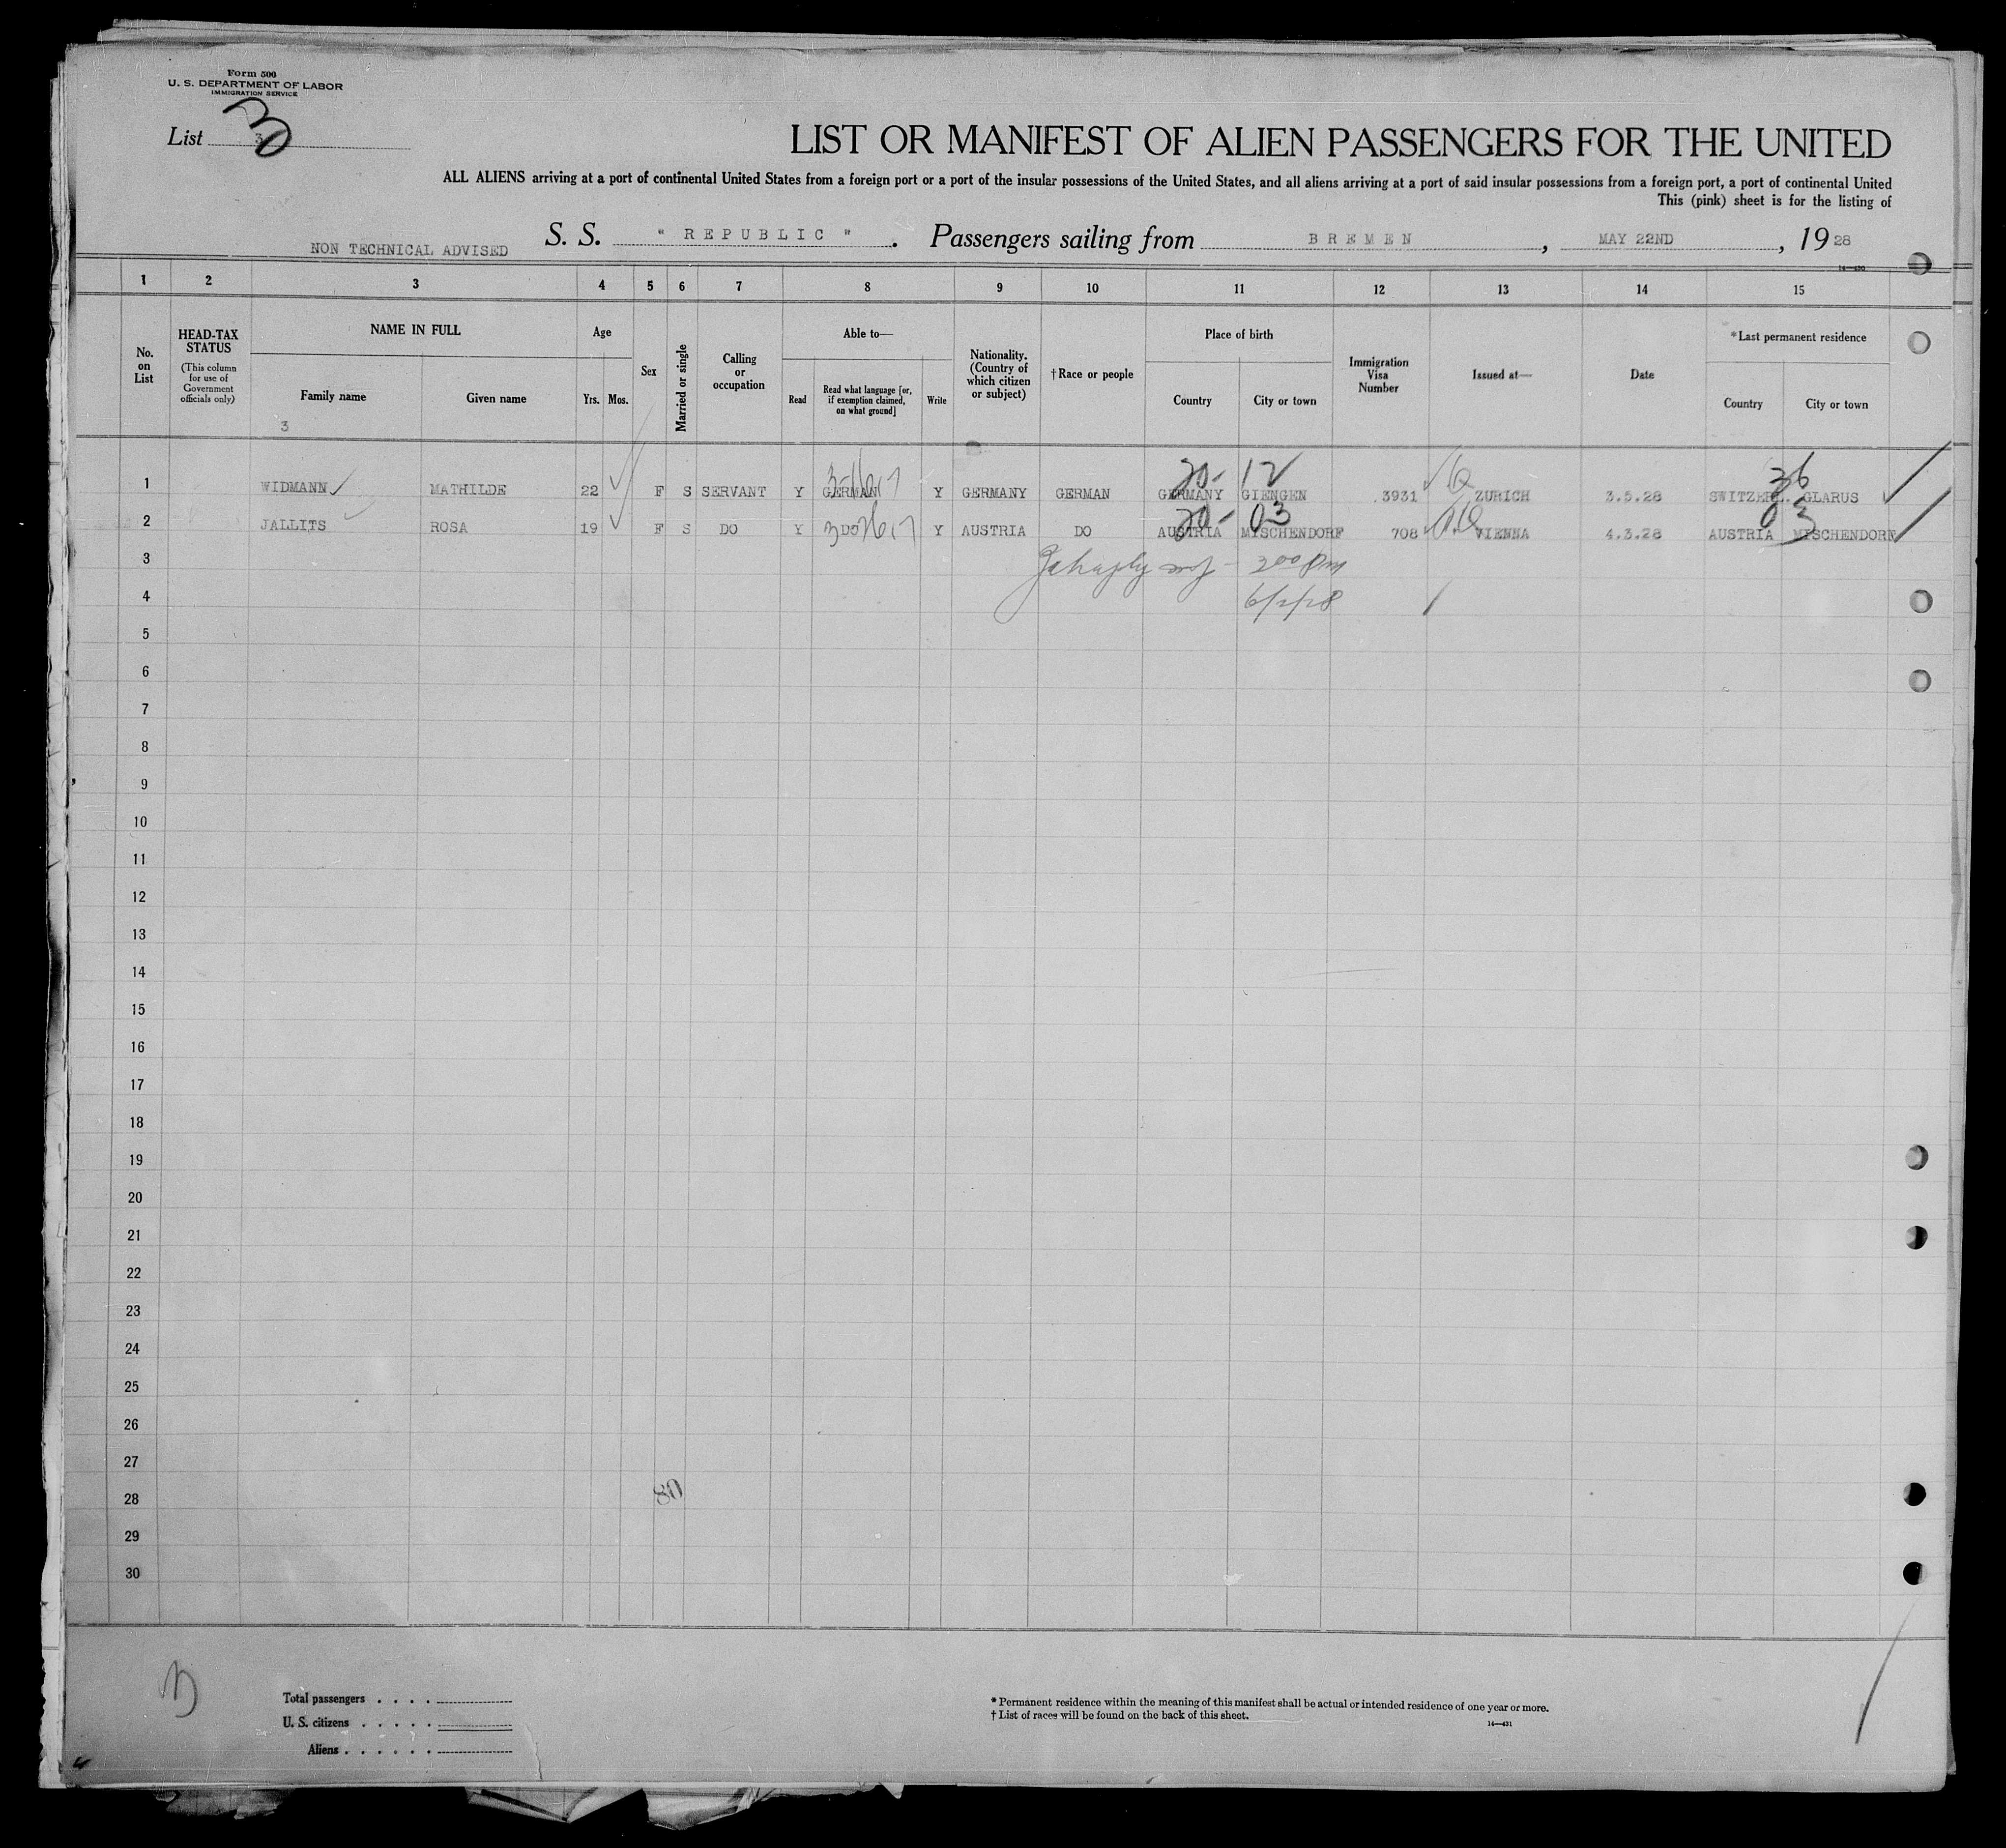 Form 500
U. S. DEPARTMENT OF LABOR
IMMIGRATION SERVICE
List 3
LIST OR MANIFEST OF ALIEN PASSENGERS FOR THE UNITED
ALL ALIENS arriving at a port of continental United States from a foreign port or a port of the insular possessions of the United States, and all aliens arriving at a port of said insular possessions from a foreign port, a port of continental United
This (pink) sheet is for the listing of
NON TECHNICAL ADVISED S. S. " REPUBLIC ". Passengers sailing from BREMEN, MAY 22ND, 1928
14—430
1 2 3 4 5 6 7 8 9 10 11 12 13 14 15
No. on List
HEAD-TAX STATUS
(This column for use of Government officials only)
NAME IN FULL
Family name
Given name
3
Age
Yrs. Mos.
Sex
Married or single
Calling or occupation
Able to—
Read
Read what language [or, if exemption claimed, on what ground]
Write
Nationality. (Country of which citizen or subject)
†Race or people
Place of birth
Country
City or town
Immigration Visa Number
Issued at—
Date
*Last permanent residence
Country
City or town
20- 12 36
1 WIDMANN MATHILDE 22 F S SERVANT Y GERMAN Y GERMANY GERMAN GERMANY GIENGEN 3931 ZURICH 3.5.28 SWITZERL. GLARUS
20- 03 03
2 JALLITS ROSA 19 F S DO Y DO Y AUSTRIA DO AUSTRIA MISCHENDORF 708 VIENNA 4.3.28 AUSTRIA MISCHENDORF
3 200 Pm
4 6/2/28
5
6
7
8
9
10
11
12
13
14
15
16
17
18
19
20
21
22
23
24
25
26
27
28
29
30
Total passengers . . . .
U. S. citizens . . . . .
Aliens . . . . . .
* Permanent residence within the meaning of this manifest shall be actual or intended residence of one year or more.
† List of races will be found on the back of this sheet.
14—431